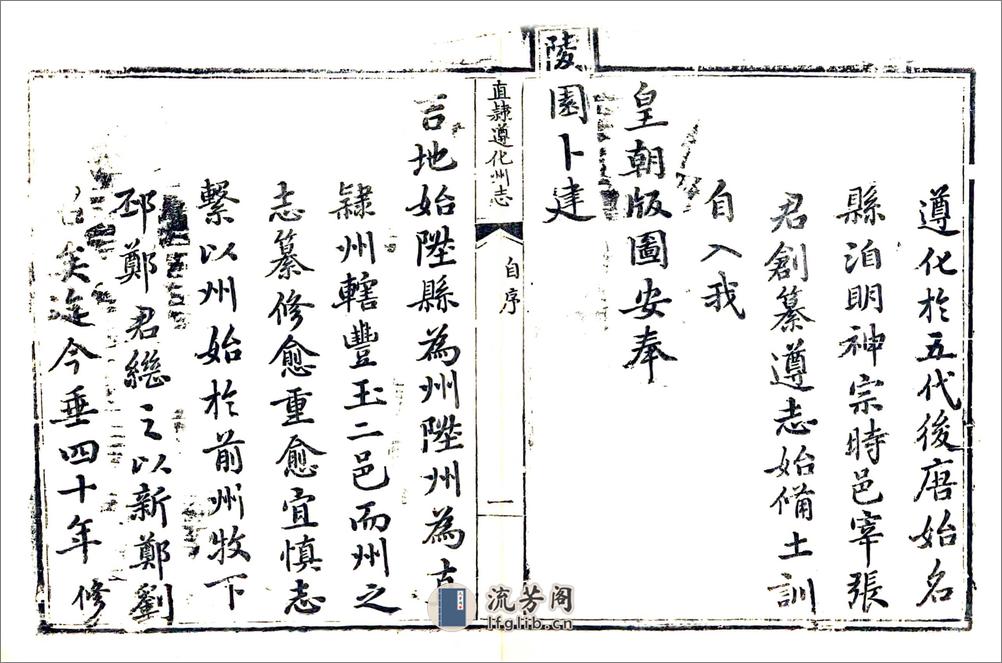 遵化於五代後唐始名
縣洎明神宗時邑宰張
君創纂遵志始備土訓
自入我
皇朝版圖安奉
陵園卜建
直隸遵化州志
自序
一
吉地始陞縣為州陞州為
隸州轄豐玉二邑而州之
志纂修愈重愈宜慎志
繫以州始於前州牧下
邳鄭君繼之以新鄭劉
矣迄今垂四十年修
流芳阁
lfglib.cn